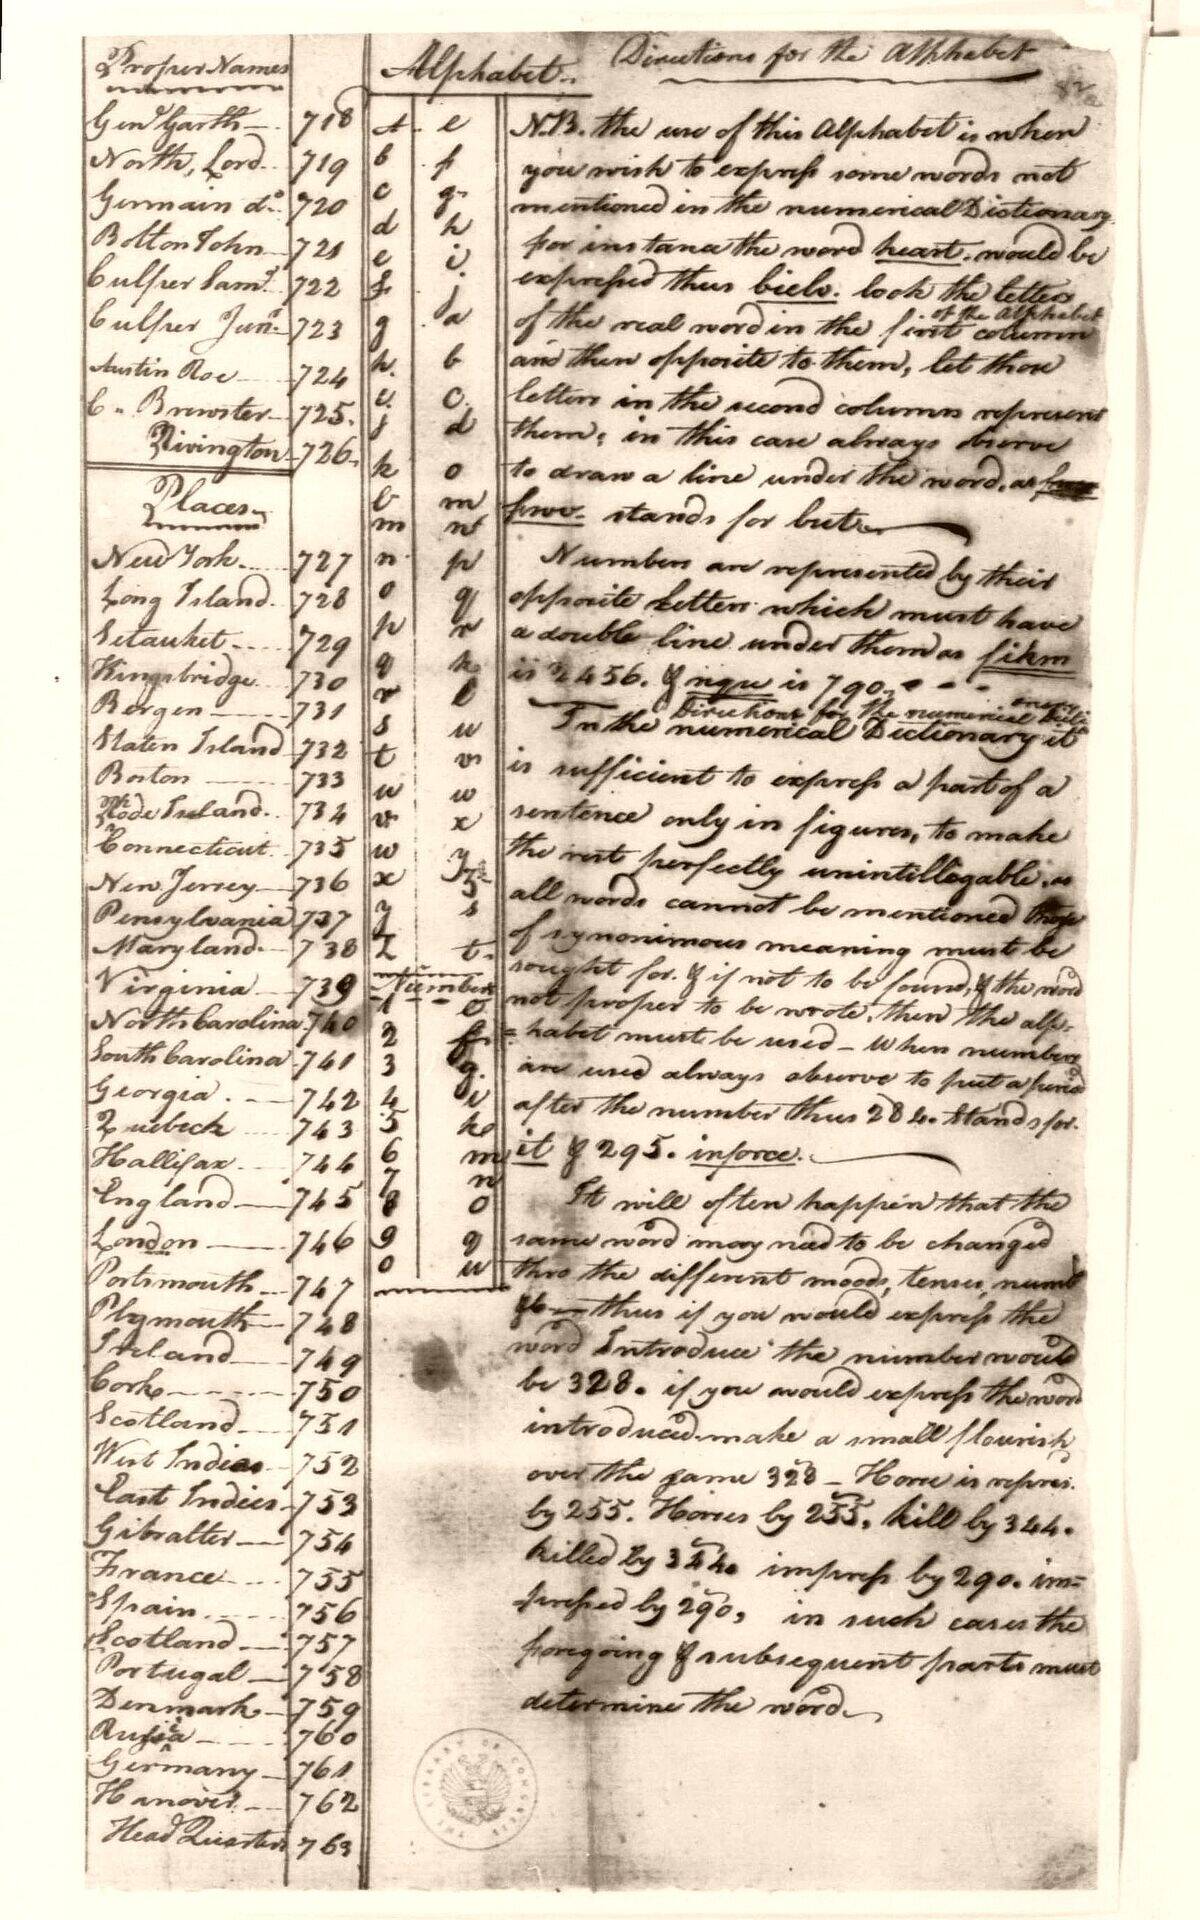 Proper Names
Genl Garth 718
North, Lord 719
Germain do 720
Bolton John 721
Culper Saml 722
Culper Junr 723
Austin Roe 724
C. Brewster 725.
Rivington 726.
Places
New York 727
Long Island 728
Setauket 729
Kingsbridge 730
Bergen 731
Staten Island 732
Boston 733
Rhode Island 734
Connecticut 735
New Jersey 736
Pensylvania 737
Maryland 738
Virginia 739
North Carolina 740
South Carolina 741
Georgia 742
Quebeck 743
Hallifax 744
England 745
London 746
Portsmouth 747
Plymouth 748
Ireland 749
Cork 750
Scotland 751
West Indies 752
East Indies 753
Gibralter 754
France 755
Spain 756
Scotland 757
Portugal 758
Denmark 759
Russia 760
Germany 761
Hanover 762
Head Quarters 763
Alphabet
A e
b f
c g
d h
e i
f j
g a
h b
i c
j d
k o
l m
m n
n p
o q
p r
q k
r l
s u
t v
u w
v x
w y
x z
y s
z t
Numbers
1 e
2 f
3 g
4 i
5 k
6 m
7 n
8 o
9 q
0 u
Directions for the Alphabet
N.B. the use of this Alphabet is when
you wish to express some words not
mentioned in the numerical Dictionary.
for instance the word heart. would be
expressed thus bielv. look the letters
of the real word in the first column of the Alphabet
and then opposite to them, let those
letters in the second columns represent
them; in this case always observe
to draw a line under the word, as
fwv. stands for but
Numbers are represented by their
opposite letters which must have
a double line under them as fikm
is 2456. & nqu is 790.
Directions for the numerical
In the numerical Dictionary it
is sufficient to express a part of a
sentence only in figures, to make
the rest perfectly unintillegable, as
all words cannot be mentioned those
of synonimous meaning must be
sought for. & if not to be found, & the word
not proper to be wrote, then the alp-
habet must be used – When numbers
are used always observe to put a period
after the number thus 284. stands for
it & 295. inforce.
It will often happen that the
same word may need to be changed
thro the different moods, tenses, numb
thus if you would express the
word Introduce the number would
be 328. if you would express the word
introduced make a small flourish
over the same 328 – Horse is repres.
by 255. Horses by 255, kill by 344.
killed by 344. impress by 290. im-
pressed by 290, in such cases the
foregoing & subsequent parts must
determine the word
THE LIBRARY OF CONGRESS